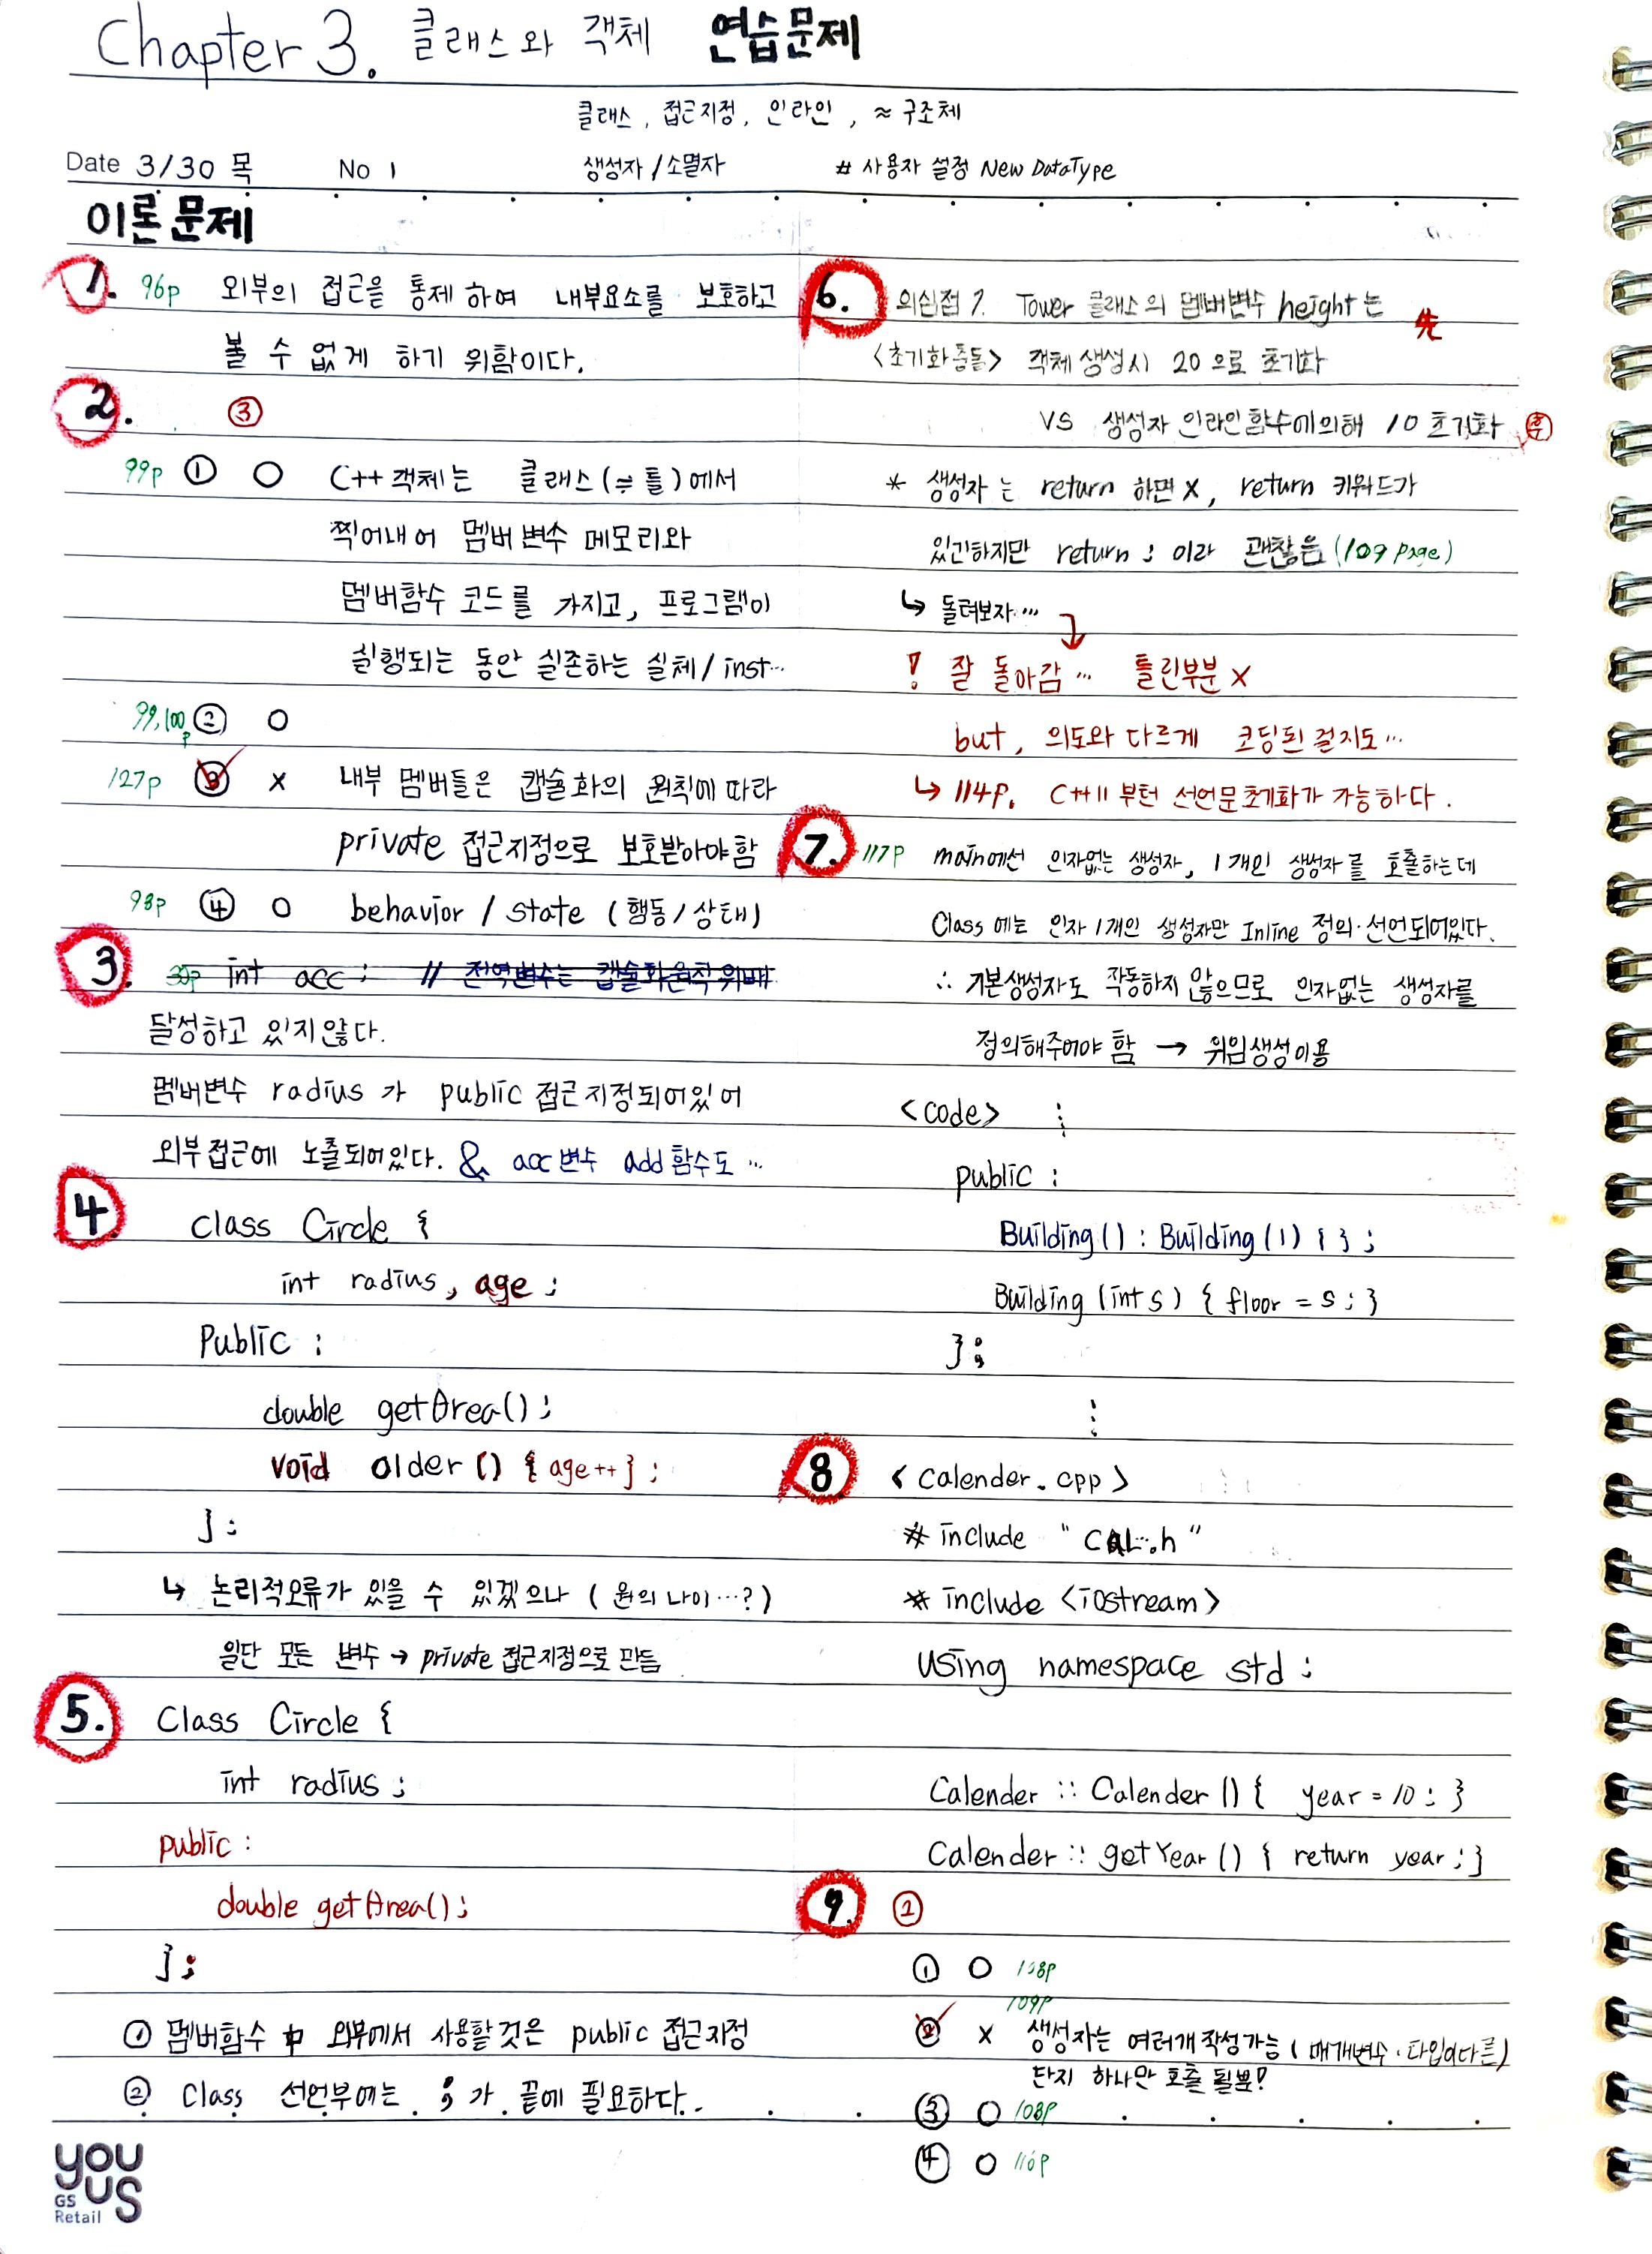 Chapter 3. 클래스와 객체 연습문제
클래스, 접근지정, 인라인, ≈구조체
Date 3/30 목 No 1 생성자/소멸자 # 사용자 설정 New DataType
이론문제
1. 96p 외부의 접근을 통제하여 내부요소를 보호하고
볼 수 없게 하기 위함이다.
2. ③
99p ① O C++ 객체는 클래스(≒틀)에서
찍어내어 멤버변수 메모리와
멤버함수 코드를 가지고, 프로그램이
실행되는 동안 실존하는 실체/inst…
99,100p ② O
127p ③ x 내부 멤버들은 캡슐화의 원칙에 따라
private 접근지정으로 보호받아야함
98p ④ O behavior / state (행동/상태)
3. 30p int acc; // 전역변수는 캡슐화원칙 위배
달성하고 있지않다.
멤버변수 radius 가 public 접근지정되어있어
외부접근에 노출되어있다. & acc변수 add함수도…
4. class Circle {
int radius, age;
Public :
double getArea();
void older() { age++ };
};
↳ 논리적오류가 있을 수 있겠으나 (원의 나이…?)
일단 모든 변수 → private 접근지정으로 만듬
5. Class Circle {
int radius;
public:
double getArea();
};
① 멤버함수 中 외부에서 사용할것은 public 접근지정
② Class 선언부에는 ; 가 끝에 필요하다.
6. 의심점 1. Tower 클래스의 멤버변수 height는 先
<초기화충돌> 객체생성시 20으로 초기화
VS 생성자 인라인함수에의해 10초기화 후
* 생성자는 return 하면 x, return 키워드가
있긴하지만 return; 이라 괜찮음 (109 page)
↳ 돌려보자…
! 잘 돌아감… 틀린부분 x
but, 의도와 다르게 코딩된 걸지도…
↳ 114p. C++11 부턴 선언문초기화가 가능하다.
7. 117p main에선 인자없는 생성자, 1개인 생성자를 호출하는데
Class에는 인자 1개인 생성자만 Inline 정의·선언되어있다.
∴ 기본생성자도 작동하지 않으므로 인자없는 생성자를
정의해주어야 함 → 위임생성이용
<code> ⋮
public :
Building() : Building(1) { };
Building(int s) { floor = s; }
};
⋮
8 <Calender.cpp>
#include "CAL.h"
#include <iostream>
using namespace std;
Calender :: Calender() { year = 10; }
Calender :: getYear() { return year; }
9. ②
① O 108p
109p
② x 생성자는 여러개작성가능 (매개변수·타입이다른)
단지 하나만 호출 될뿐!
③ O 108p
④ O 116p
you us
GS Retail